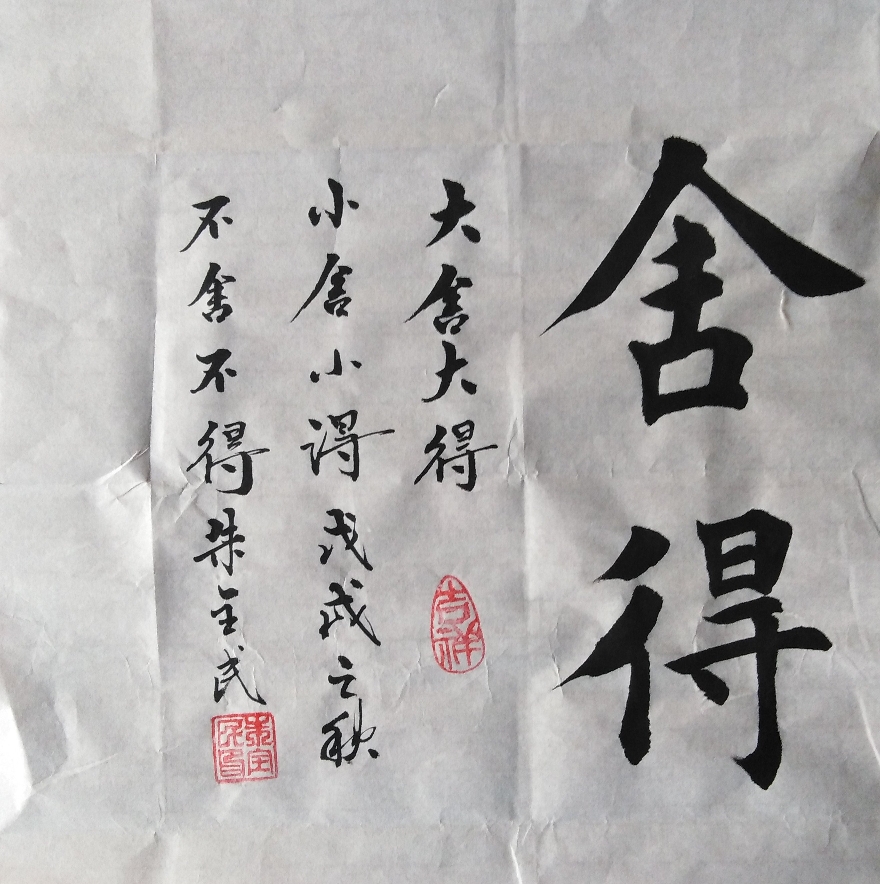 舍得
大舍大得
吉祥
小舍小得戊戌之秋
不舍不得朱全民